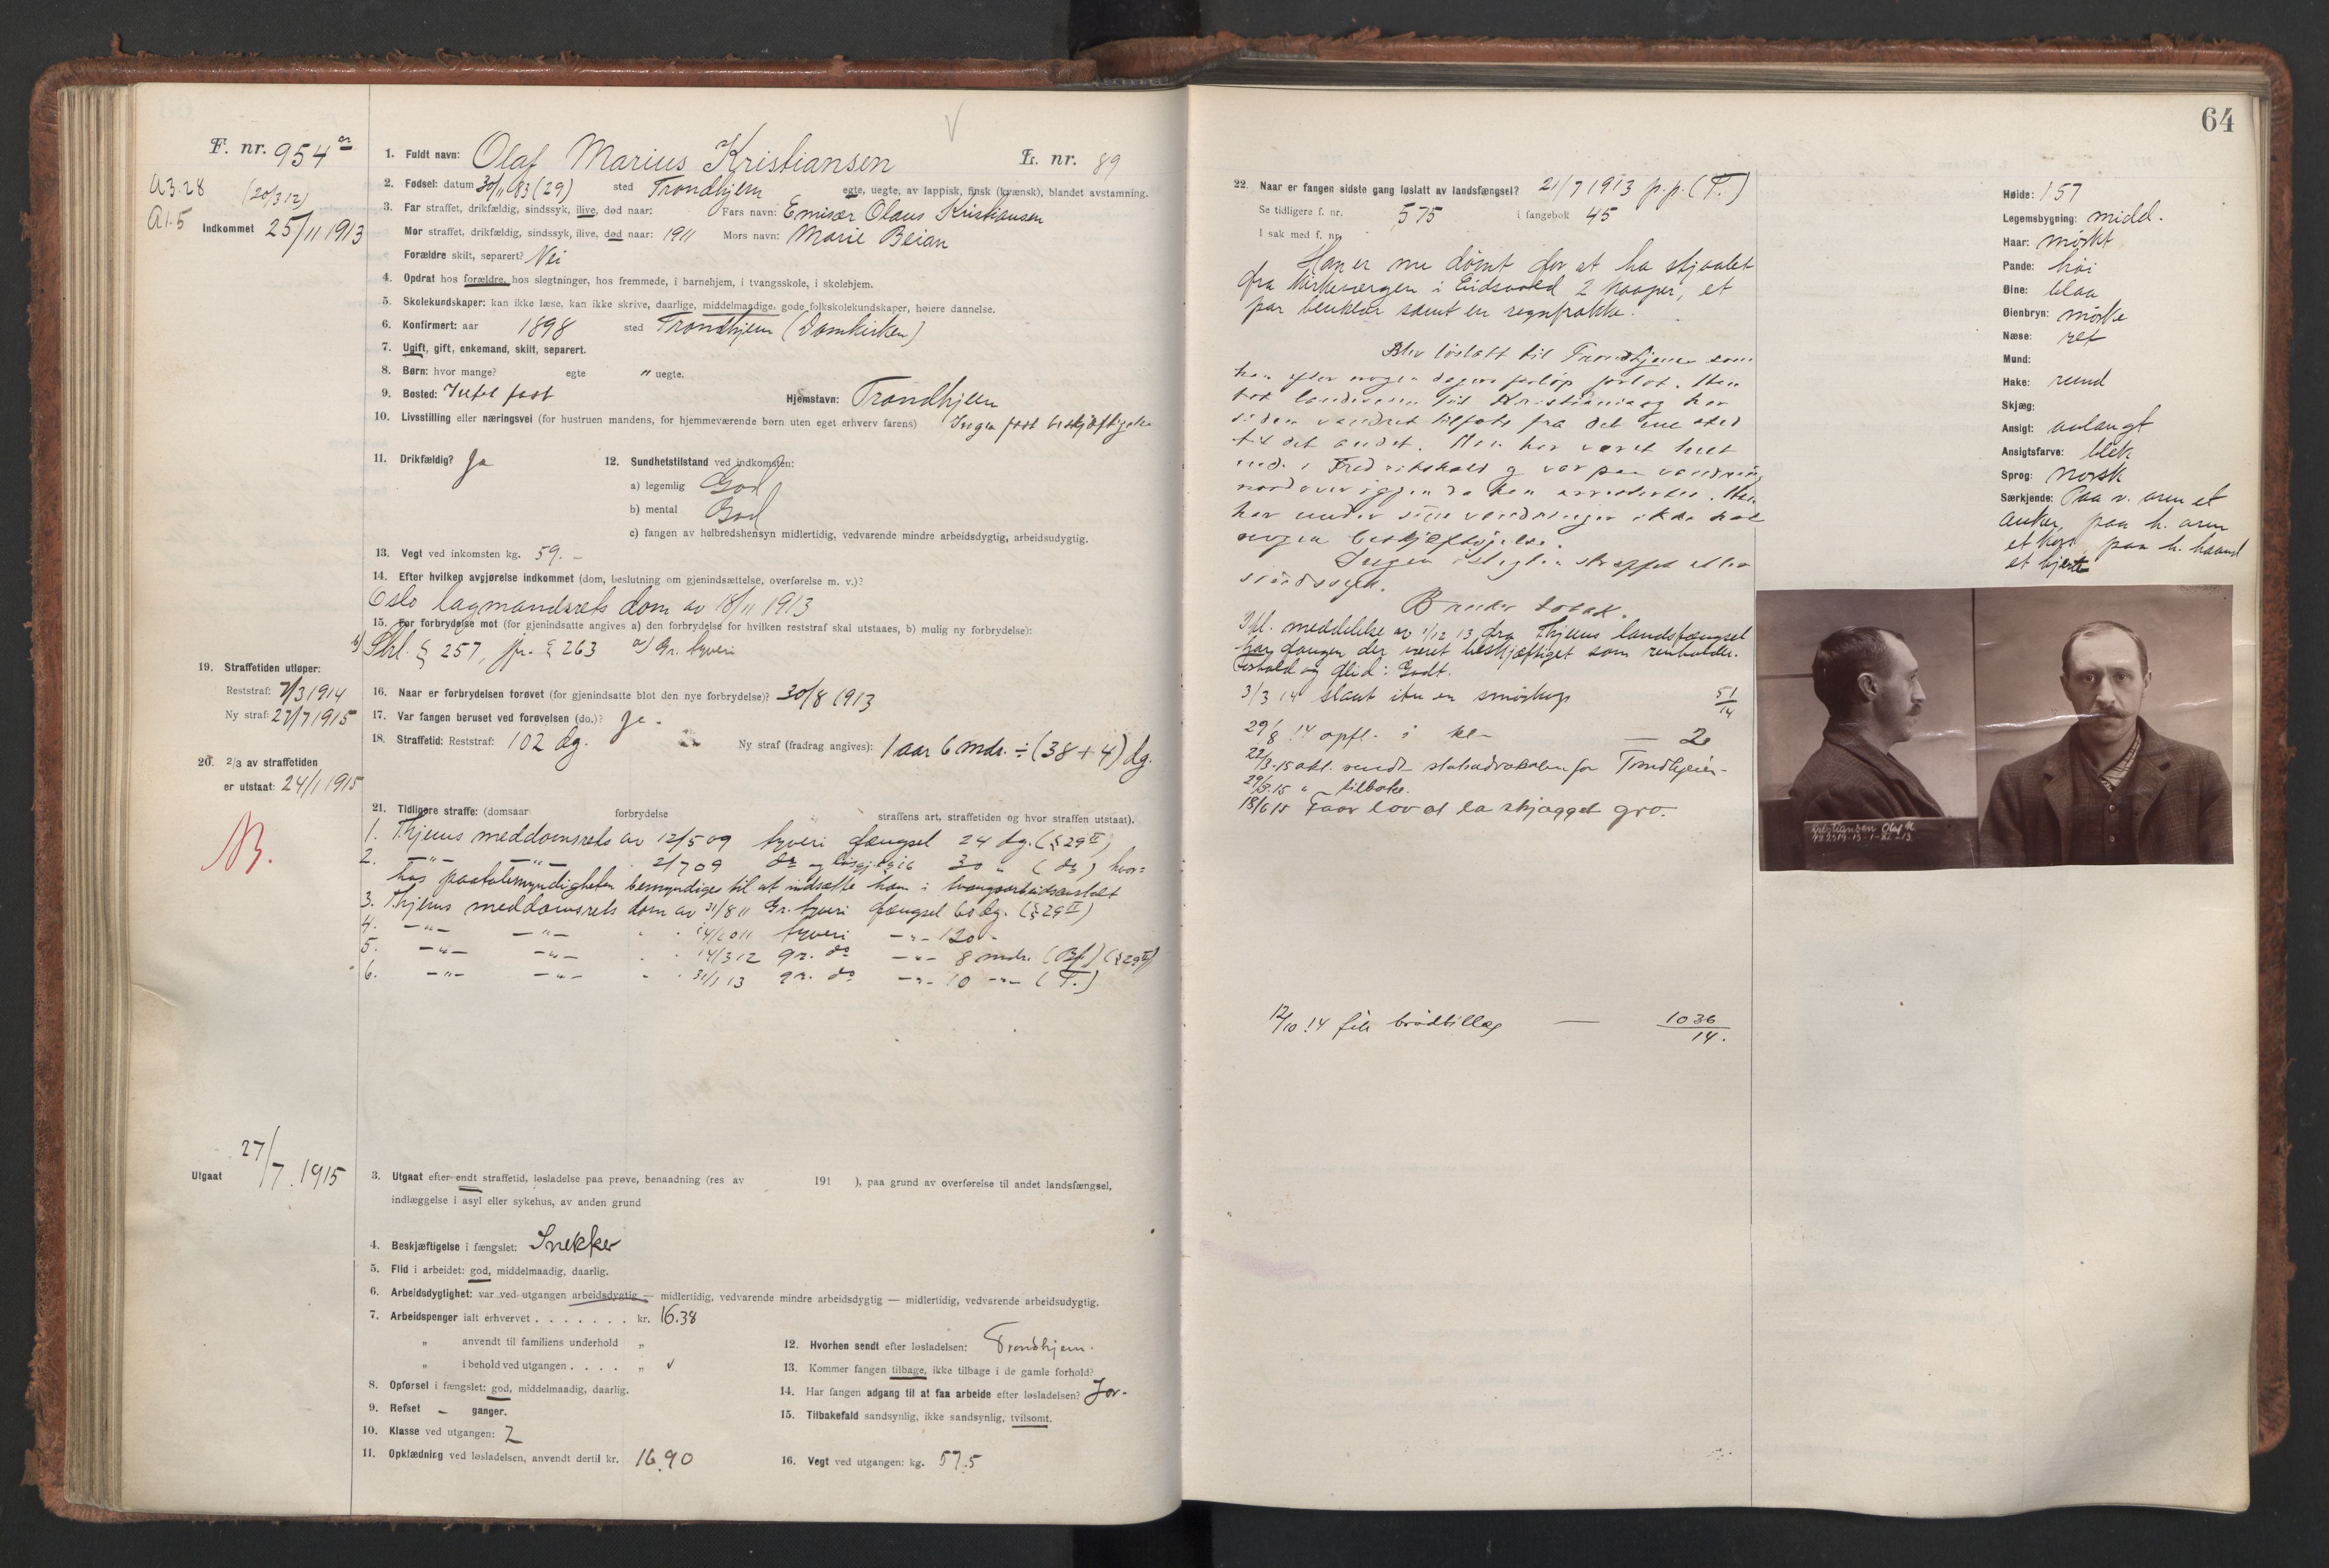 F. nr. 954 a
A 3. 28 (20/3 12)
A 1. 5
Indkommet 25/11 1913
1. Fuldt navn: Olaf Marius Kristiansen L. nr. 89
2. Fødsel: datum 30/11 83 (29) sted Trondhjem egte, uegte, av lappisk, finsk (kvænsk), blandet avstamning.
3. Far straffet, drikfældig, sindssyk, ilive, død naar: Fars navn: Emisær Olaus Kristiansen
Mor straffet, drikfældig, sindssyk, ilive, død naar: 1911 Mors navn: Marie Beian
Forældre skilt, separert? Nei
4. Opdrat hos forældre, hos slegtninger, hos fremmede, i barnehjem, i tvangsskole, i skolehjem.
5. Skolekundskaper: kan ikke læse, kan ikke skrive, daarlige, middelmaadige, gode folkskolekundskaper, høiere dannelse.
6. Konfirmert: aar 1898 sted Trondhjem (Domkirken)
7. Ugift, gift, enkemand, skilt, separert.
8. Børn: hvor mange? egte " uegte.
9. Bosted: Intet fast Hjemstavn: Trondhjem
10. Livsstilling eller næringsvei (for hustruen mandens, for hjemmeværende børn uten eget erhverv farens) Ingen fast beskjæftigelse
11. Drikfældig? Ja 12. Sundhetstilstand ved indkomsten:
a) legemlig God
b) mental God
c) fangen av helbredshensyn midlertidig, vedvarende mindre arbeidsdygtig, arbeidsudygtig.
13. Vegt ved inkomsten kg. 59. –
14. Efter hvilken avgjørelse indkommet (dom, beslutning om gjenindsættelse, overførelse m. v.)?
Oslo lagmandsrets dom av 18/11 1913
15. For forbrydelse mot (for gjenindsatte angives a) den forbrydelse for hvilken reststraf skal utstaaes, b) mulig ny forbrydelse):
b) Strl. § 257, jfr. § 263 a) Gr. tyveri
19. Straffetiden utløper:
Reststraf: 7/3 1914
Ny straf: 27/7 1915
16. Naar er forbrydelsen forøvet (for gjenindsatte blot den nye forbrydelse)? 30/8 1913
17. Var fangen beruset ved forøvelsen (do.)? Ja.
18. Straffetid: Reststraf: 102 dg. Ny straf (fradrag angives): 1 aar 6 mdr. ÷ (38 + 4) dg.
20. 2/3 av straffetiden
er utstaat: 24/1 1915
21. Tidligere straffe: (domsaar forbrydelse straffens art, straffetiden og hvor straffen utstaat).
1. Thjems meddomsrets av 12/5 09 tyveri fængsel 24 dg. (§ 29 II)
2. —"— —"— 2/7 09 do og løsgjængeri 30 " (do) hvor=
hos paatalemyndigheten bemyndiges til at indsætte ham i tvangsarbeidsanstalt
3. Thjems meddomsrets dom av 31/8 11 Gr. tyveri fængsel 60 dg. (§ 29 II)
4. —"— —"— 14/10 11 tyveri —"— 120 "
5. —"— —"— 14/3 12 gr. do —"— 8 mdr. (Bf.) (§ 29 II)
6. —"— —"— 31/1 13 gr. do —"— 10 —"— (T.)
Utgaat 27/7. 1915
3. Utgaat efter endt straffetid, løsladelse paa prøve, benaadning (res av 191 ), paa grund av overførelse til andet landsfængsel,
indlæggelse i asyl eller sykehus, av anden grund
4. Beskjæftigelse i fængslet: Snekker
5. Flid i arbeidet: god, middelmaadig, daarlig.
6. Arbeidsdygtighet: var ved utgangen arbeidsdygtig — midlertidig, vedvarende mindre arbeidsdygtig — midlertidig, vedvarende arbeidsudygtig.
7. Arbeidspenger ialt erhvervet . . . . . . . kr. 16.38
" anvendt til familiens underhold "
" i behold ved utgangen . . . . " ✓
8. Opførsel i fængslet: god, middelmaadig, daarlig.
9. Refset – ganger.
10. Klasse ved utgangen: 2
11. Opklædning ved løsladelsen, anvendt dertil kr. 16.90
12. Hvorhen sendt efter løsladelsen: Trondhjem.
13. Kommer fangen tilbage, ikke tilbage i de gamle forhold?
14. Har fangen adgang til at faa arbeide efter løsladelsen? Ja.
15. Tilbakefald sandsynlig, ikke sandsynlig, tvilsomt.
16. Vegt ved utgangen: kg. 57.5
64
22. Naar er fangen sidste gang løslatt av landsfængsel? 21/7 1913 p.p. (T.)
Se tidligere f. nr. 575 i fangebok 45
I sak med f. nr.
Han er nu dømt for at ha stjaalet
fra Kirkevergen i Eidsvold 2 kaaper, et
par benklær samt en regnfrakke.
Blev løslatt til Trondhjem som
han efter nogen dagers forløp forlot. Han
tok landeveien til Kristiania og har
siden vandret tilfots fra det ene sted
til det andet. Han har været helt
nede i Fredrikshald og var paa vandring
nordover igjen da han arrestertes. Han
har under sine vandringer ikke hat
nogen beskjæftigelse.
Ingen i slegten straffet eller
sindssyk.
Bruker tobak.
Ifl. meddelelse av 1/12 13 fra Thjems landsfængsel
har fangen der været beskjæftiget som renholder.
Forhold og flid: Godt.
3/3 14 slaat itu en smørkop 51/14
29/8 14 opfl. i kl. — 2
22/3.15 akt. sendt statsadvokaten for Trondhjem.
29/3.15 " – tilbake.
18/6 15 Faar lov at la skjægget gro.
12/10 14 fik brødtillæg — 1036/14.
Høide: 157
Legemsbygning: midd.
Haar: mørkt
Pande: høi
Øine: blaa
Øienbryn: mørke
Næse: ret
Mund:
Hake: rund
Skjæg:
Ansigt: avlangt
Ansigtsfarve: blek
Sprog: norsk
Særkjende: Paa v. arm et
anker, paa h. arm
et kors, paa h. haand
et hjerte
Kristiansen Olaf M.